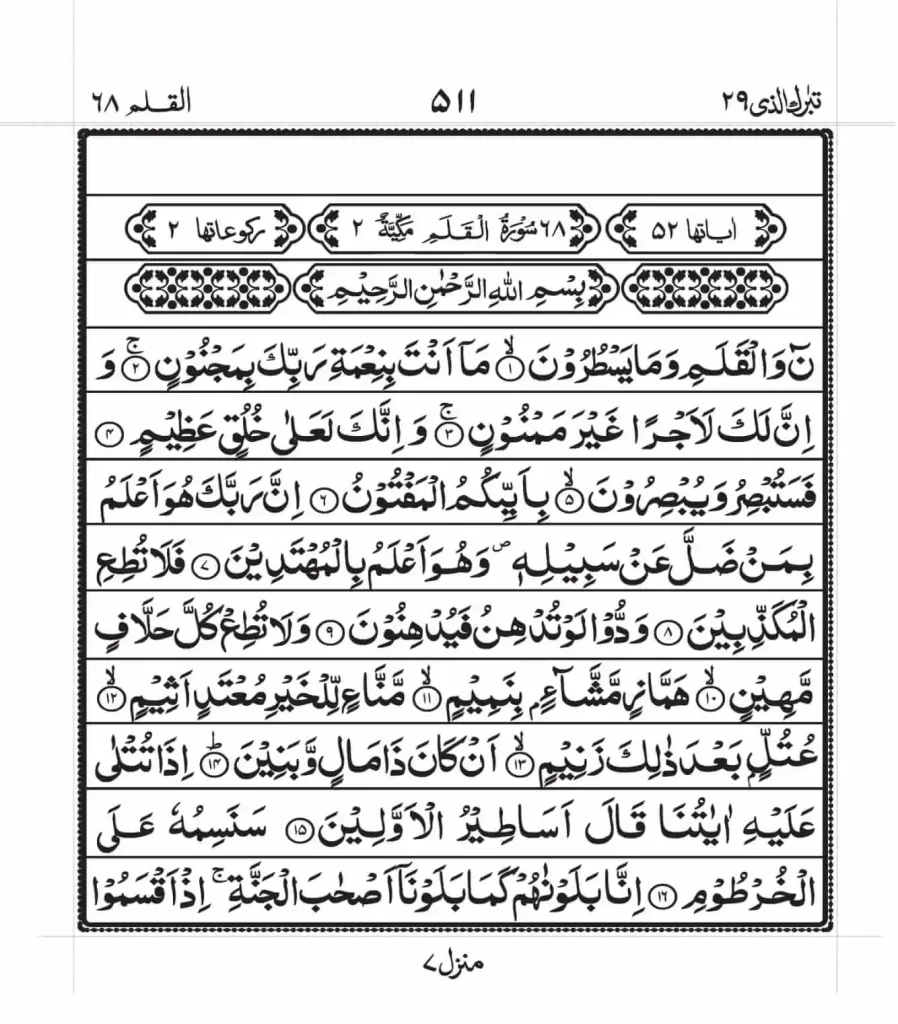 تبٰرك الذی ۲۹ ۵۱۱ القلم ۶۸
اٰیاتها ۵۲ ۶۸ سُوْرَةُ الْقَلَمِ مَكِّیَّةٌ ۲ ركوعاتها ۲
بِسْمِ اللّٰهِ الرَّحْمٰنِ الرَّحِیْمِ
نٓ وَالْقَلَمِ وَمَا یَسْطُرُوْنَ ۙ۱ مَاۤ اَنْتَ بِنِعْمَةِ رَبِّكَ بِمَجْنُوْنٍ ۚ۲ وَ
اِنَّ لَكَ لَاَجْرًا غَیْرَ مَمْنُوْنٍ ۚ۳ وَ اِنَّكَ لَعَلٰی خُلُقٍ عَظِیْمٍ ۴
فَسَتُبْصِرُ وَیُبْصِرُوْنَ ۙ۵ بِاَیِّىكُمُ الْمَفْتُوْنُ ۶ اِنَّ رَبَّكَ هُوَ اَعْلَمُ
بِمَنْ ضَلَّ عَنْ سَبِیْلِهٖ ۪ وَهُوَ اَعْلَمُ بِالْمُهْتَدِیْنَ ۷ فَلَا تُطِعِ
الْمُكَذِّبِیْنَ ۸ وَدُّوْا لَوْ تُدْهِنُ فَیُدْهِنُوْنَ ۹ وَلَا تُطِعْ كُلَّ حَلَّافٍ
مَّهِیْنٍ ۙ۱۰ هَمَّازٍ مَّشَّآءٍۭ بِنَمِیْمٍ ۙ۱۱ مَّنَّاعٍ لِّلْخَیْرِ مُعْتَدٍ اَثِیْمٍ ۙ۱۲
عُتُلٍّۭ بَعْدَ ذٰلِكَ زَنِیْمٍ ۙ۱۳ اَنْ كَانَ ذَا مَالٍ وَّبَنِیْنَ ؕ۱۴ اِذَا تُتْلٰی
عَلَیْهِ اٰیٰتُنَا قَالَ اَسَاطِیْرُ الْاَوَّلِیْنَ ۱۵ سَنَسِمُهٗ عَلَی
الْخُرْطُوْمِ ۱۶ اِنَّا بَلَوْنٰهُمْ كَمَا بَلَوْنَاۤ اَصْحٰبَ الْجَنَّةِ ۚ اِذْ اَقْسَمُوْا
منزل ۷